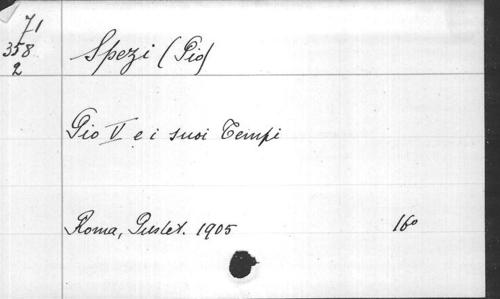 71
358
2
Spezi (Pio)
Pio V e i suoi Tempi
Roma, Pustet. 1905 16º